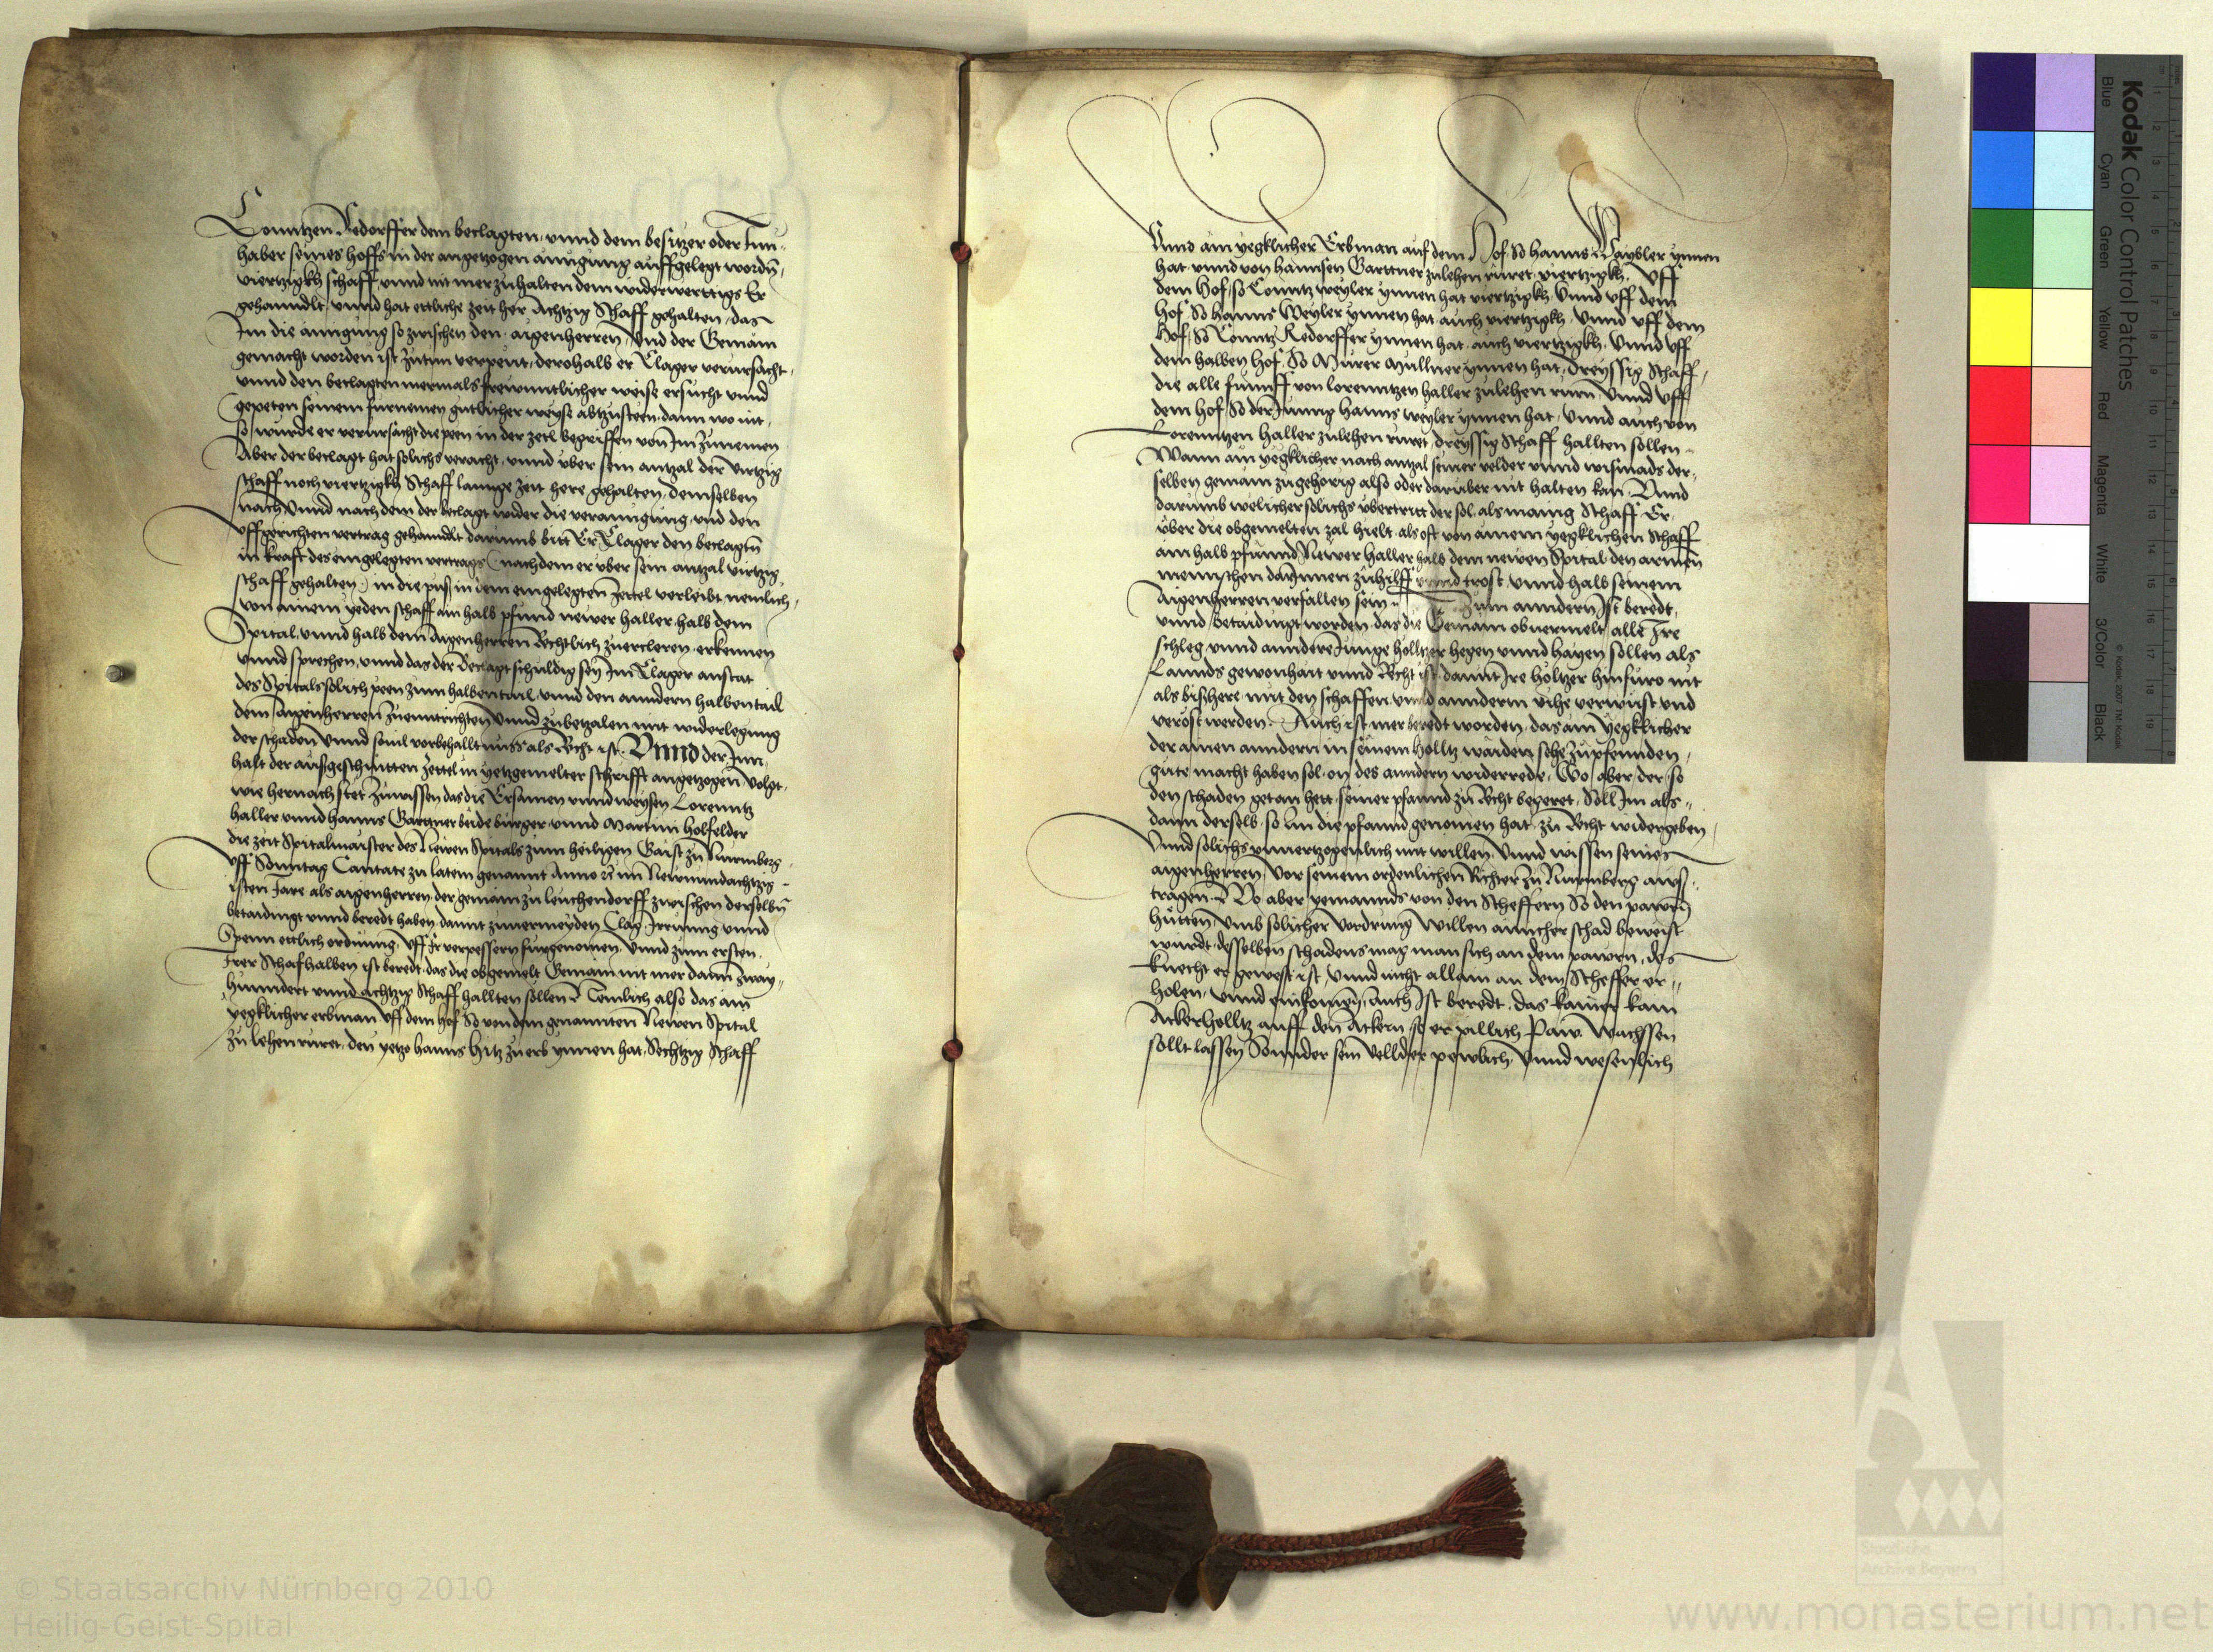 Conntzen Redorffer dem beclagten, vnnd dem besitzer oder Inn-
haber seines hoffs in der angetzogen ainigung auffgelegt wordn,
viertzigkh schaff, vnnd nit mer zuhalten dem widerwerttigs Er
gehanndlt, vnnd hat ettliche zeit her Achtzig Schaff gehalten, das
Im die ainigung so zwischen den aigenherren, vnd der Gemain
gemacht worden ist zutun verpeut, derohalb er Clager verursacht,
vnnd den beclagten mermals frewnntlicher weise ersucht vnnd
gepeten seinem furnemen gutlicher weyse abtzusteen, dann wo nit,
so wurde er verursacht die peen in der zetl begriffen von Im zunemen
Aber der beclagt hat solichs veracht, vnnd vber sein antzal der virtzig
schaff noch viertzigkh Schaff lannge zeit here gehalten, demselben
nach vnnd nach dem der beclagt wider die verainigung, vnd den
vffgerichten vertrag gehanndlt darumb bitt Er Clager den beclagtn
in krafft des eingelegten vertrags (nachdem er vber sein antzal virtzig
schaff gehalten) in die puß in dem eingelegten Zettel verleibt nemlich,
von ainem yeden schaff ain halb pfund newer haller, halb dem
Spital, vnnd halb dem Aigenherren Rechtlich zuercleren, erkennen
vnnd sprechen, vnnd das der Beclagt schuldig sey Im Clager anstat
des Spitals solich peen zum halben tail, vnnd den anndern halben tail
dem Aigenherren zuenntrichten vnnd zubetzalen mit widerlegung
der schaden vnnd souil vorbehalltnuss als Recht ist. Vnnd der Inn-
halt der außgeschnitten zettel in yetzgemelter schrifft angetzogen volgt,
wie hernach stet zuwissen das die Ersamen vnnd weysen Lorenntz
haller vnnd hanns Garttner bede burger, vnnd Martin holfelder
die zeit Spitalmaister des Newen Spitals zum heiligen Gaist zu Nurmberg
vff Sonntag Cantate zu latein genannt Anno im Newnundachtzig-
isten Jare als aigenherren der gemain zu leuchendorff zwischen derselbn
betaidingt vnnd beredt haben, damit zuuermeyden Clag Irrung vnnd
Spenn ettlich ordnung, vff Ir verpessern furgenomen, vnnd zum ersten,
Irer Schafhalben ist beredt, das die obgemelt Gemain nit mer dann zway-
hunndert vnnd achtzig Schaff hallten sollen Nemlich also das ain
yegklicher erbman vff dem hof So von dem genannten Newen Spital
zu lehen ruret, den yetzo hanns hitz zu erb ynnen hat, Sechtzig Schaff
Vnnd ain yegklicher Erbman auf dem Hof, So hanns Waybler ynnen
hat vnnd von hannsen Garttner zulehen ruret, viertzigkh, Vff
dem Hof, so Conntz weyler ynnen hat viertzigkh, Vnnd vff dem
hof So hanns Weyler ynnen hat, auch viertzigkh, Vnnd vff dem
hof, So Conntz Redorffer ynnen hat, auch viertzigkh, Vnnd vff
dem halben hof, So Murer Mullner ynnen hat, Dreyssig Schaff,
die alle funff von lorenntzen haller zulehen rurn, Vnnd vff
dem hof, So der Jung hanns weyler ynnen hat, Vnnd auch von
Lorenntzen haller zulehen ruret, dreyssig Schaff hallten sollen
Wann ain yegklicher nach antzal seiner velder vnnd wismads der-
selben gemain zugehorig also oder daruber nit halten kan, Vnnd
darumb welicher solichs vbertritt der sol, als manig Schaff Er,
vber die obgemelten zal hielt, als oft von ainem yegklichen Schaff
ain halb pfunnd Newer haller halb dem newen Spital, den armen
mennschen darInnen zuhilff vnnd trost, vnnd halb seinem
Aigenherren verfallen sein Zum anndern Ist beredt,
vnnd betaidingt worden, das die Gemain obuermelt, alle Ire
schleg, vnnd anndere Junge holltzer hegen vnnd hayen sollen als
Lannds gewonhait vnnd Recht ist, damit Ire holtzer hinfuro nit
als bishere, mit den schaffen, vnnd annderm vihe verwust vnd
verost werden. Auch ist mer beredt worden, das ain yegklicher
der ainen anndern in seinem holltz waiden sehe zupfennden,
gute macht haben sol, on des anndern widerrede, Wo aber der, so
den schaden getan hett, seiner pfannd zu Recht begeret, Soll Im als-
dann derselb, so Im die pfannd genomen hat, zu Recht widergeben,
Vnnd solichs vnuertzogenlich mit willen, Vnnd wissen seines
aigenherren, vor seinem ordenlichen Richter zu Nurmberg auß-
tragen. Wo aber yemannds von den Scheffern So den pawrn
hutten vmb solicher vordrung willen ainicher schad beweist
wurdt, desselben schadens mag man sich an dem pawrn, des
knecht er gewest ist, vnnd nicht allain an dem Scheffer er-
holen, vnnd einkomen, Auch Ist beredt, das kainer kain
Ackerholltz auff den Ackern, so er pillich Paw, Wachssen
sollt lassen Sonnder sein vellder pewlich, vnnd wesenlich
Kodak Color Control Patches
Blue Cyan Green Yellow Red Magenta White 3/Color Black
© Kodak, 2007 TM: Kodak
© Staatsarchiv Nürnberg 2010
Heilig-Geist-Spital
Archive Bayerns
www.monasterium.net